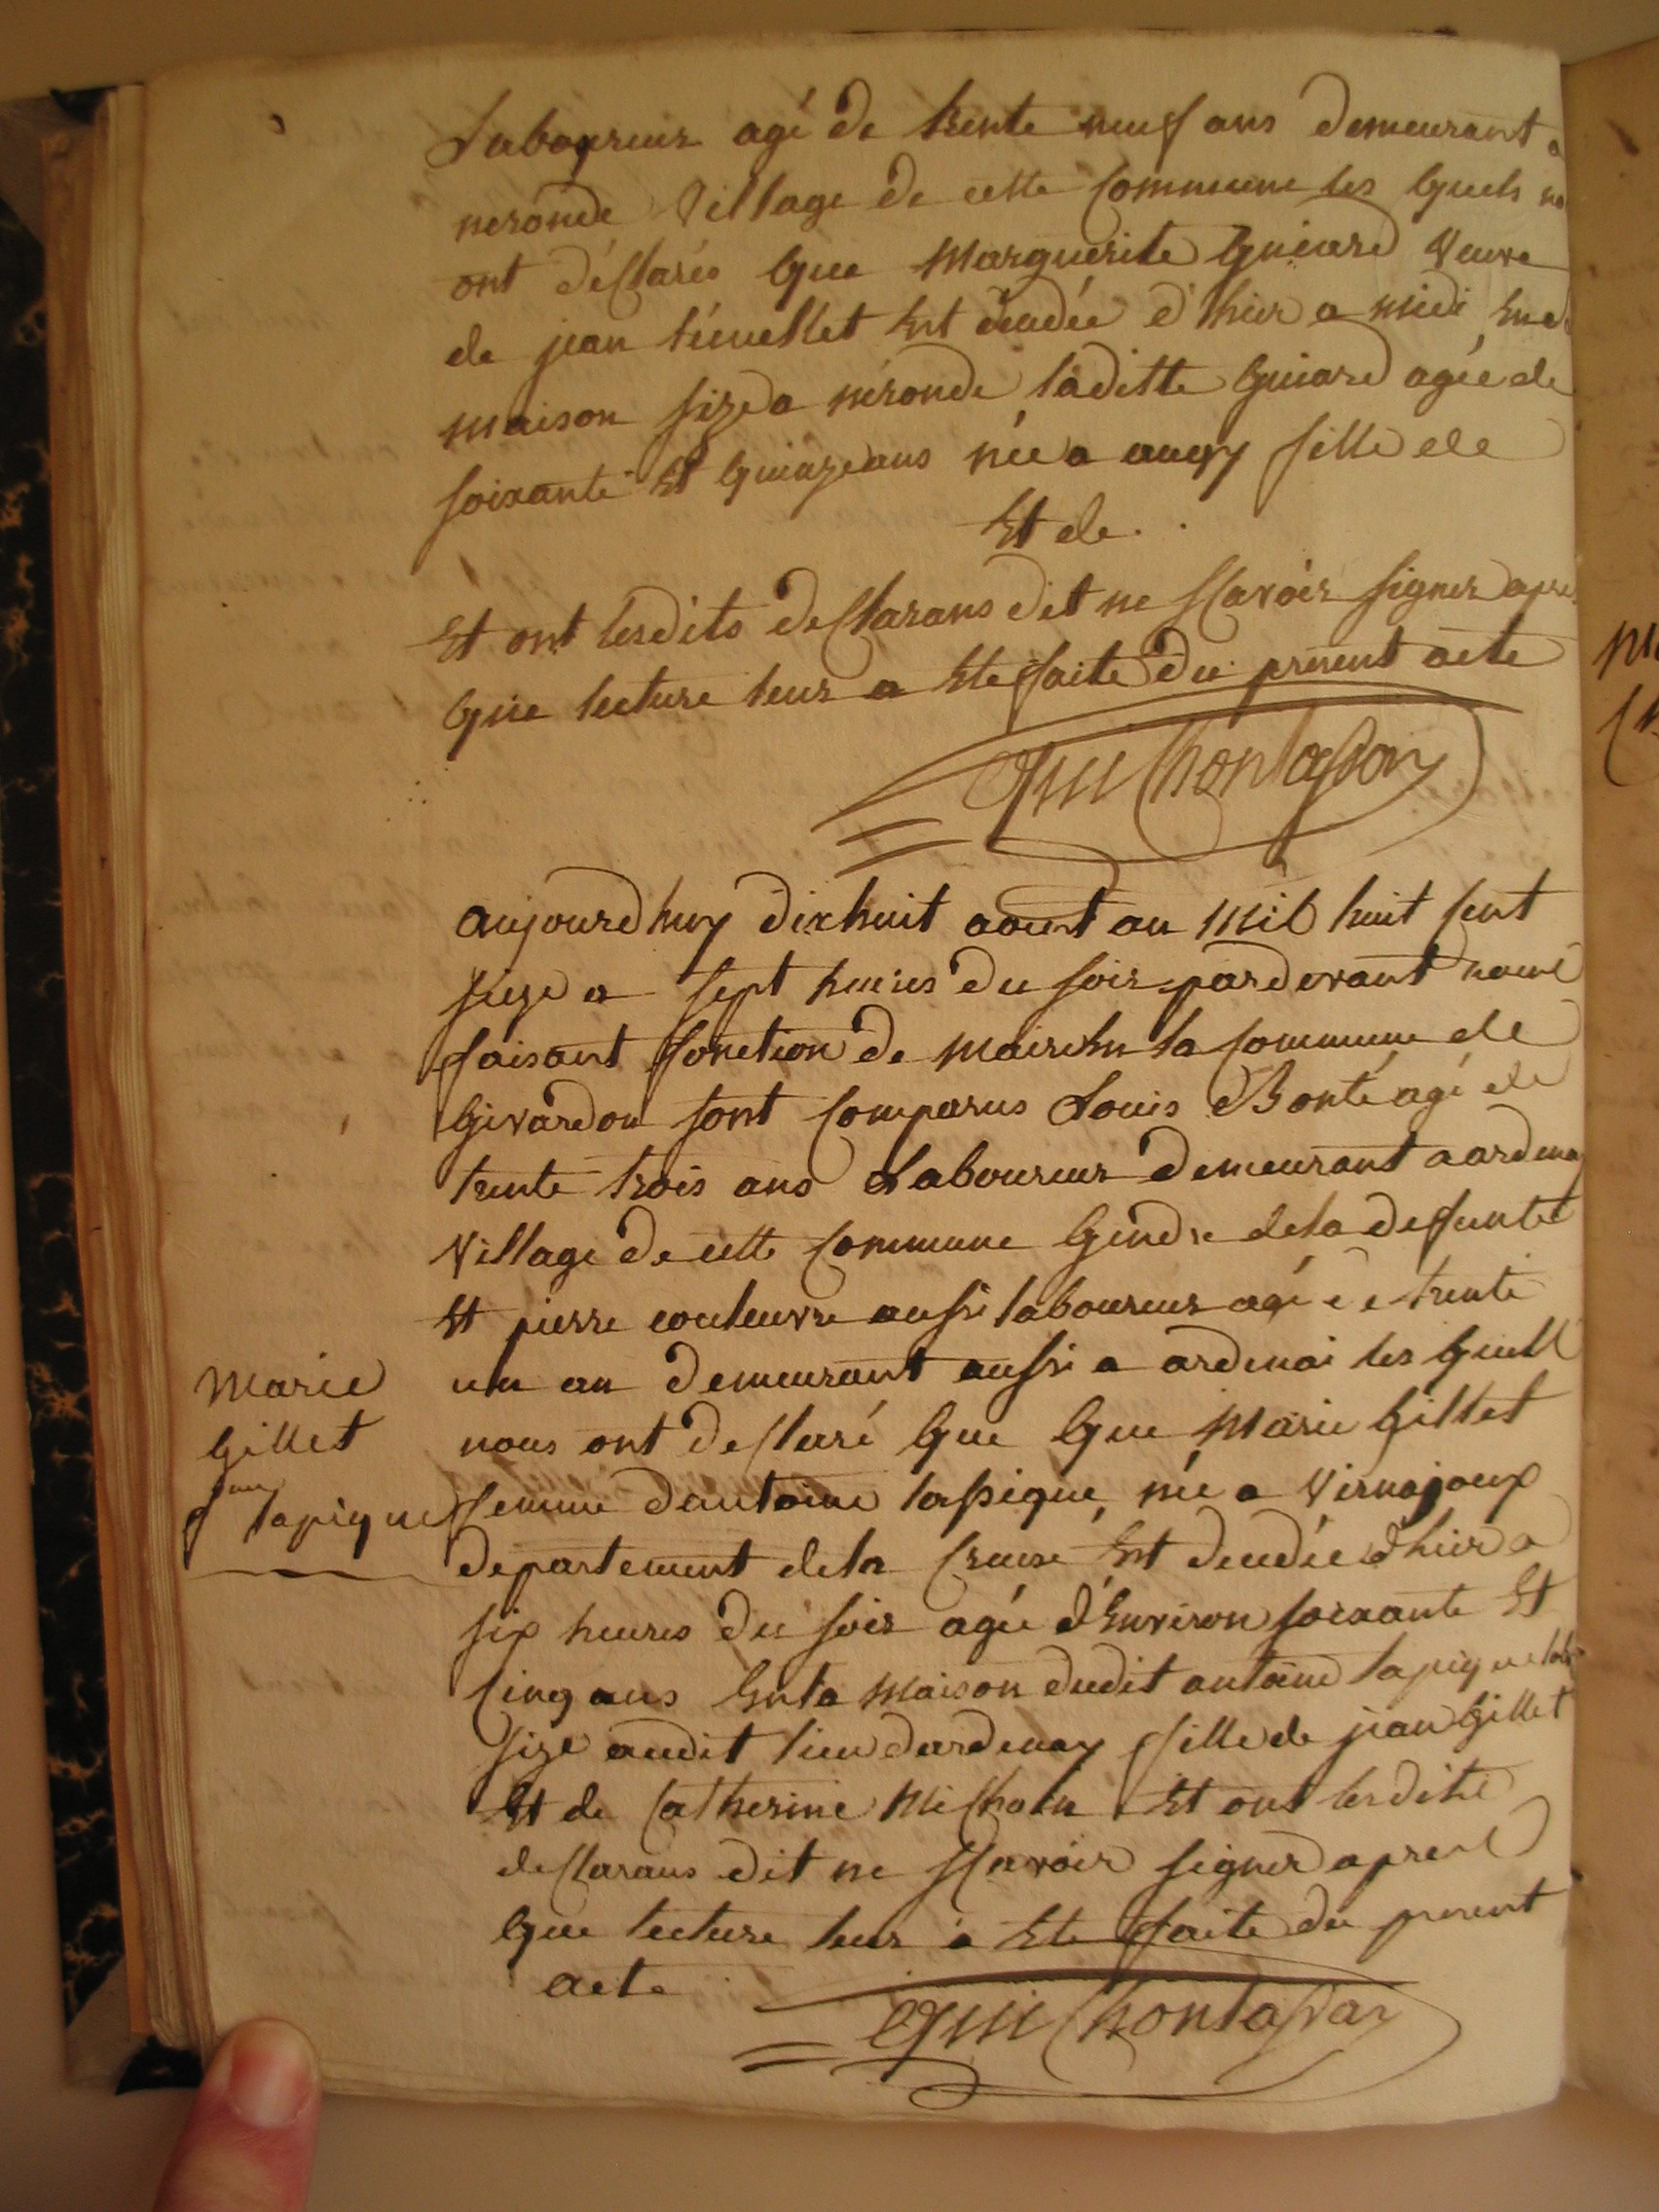 Laboureur agé de trente neuf ans demeurant a
neronde village de cette Commune les quels no
ont déclarés que Marguerite Guiard veuve
de jean est decedée d'hier a midi en
maison size a néronde laditte Guiard agée de
soixante et quinze ans née a augy fille de
Et de .
Et ont lesdits declarans dit ne scavoir signer apres
que lecture leur a ete faite du present acte
aujourdhuy dixhuit aout an mil huit cent
seize a sept heures du soir pardevant nous
faisant fonction de maire en la commune de
Givardon sont comparus Louis Bonté agé de
trente trois ans Laboureur demeurant a ardenay
village de cette commune gendre de la defunte
et pierre couleuvre aussi laboureur agé de trente
un an demeurant aussi a ardenai les quels
nous ont declaré que que Marie Gillet
femme dantoine lapique née a
departement de la Creuse est decedée d'hier a
six heures du soir agée d'environ soixante et
cinq ans en la maison dudit antoine lapique
size audit lieu dardenay fille de jean Gillet
et de Catherine Et ont lesdits
declarans dit ne scavoir signer apres
que lecture leur a ete faite du present
acte
Marie
Gillet
fme lapique